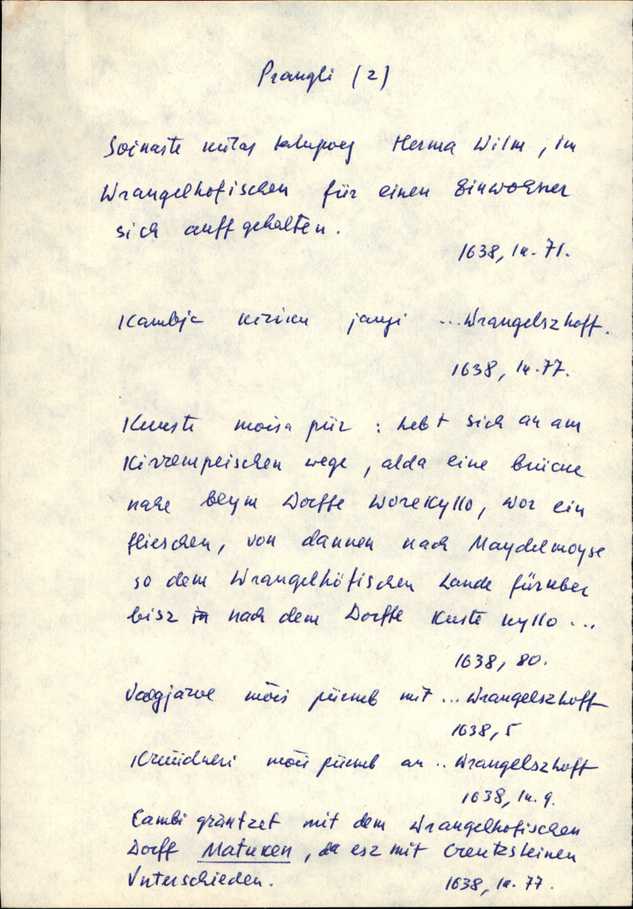 Prangli (2)
Soinaste külas talupoeg Herma Wilm, im
Wrangelhofischen für einen Einwohner
sich auffgehalten.
1638, lk. 71.
Kambja kiriku jaugi ... Wrangelszhoff.
1638, lk. 77.
Kuuste mõisa piir: hebt sich an am
Kirrempeischen wege, alda eine brücke
nahe beym Dorffe Worekyllo, wor ein
flieschen, von dannen nach Maydelmoyse
so dem Wrangelhöfischen Lande fürüber
bisz nach dem Dorffe Kuste kyllo ...
1638, 80.
Vaegjärve mõis piirneb mit ... Wrangelszhoff
1638, 5
Krüüdneri mõis piirneb an .. Wrangelszhoff
1638, lk. 9.
Cambi gräntzet mit dem Wrangelhofischen
Dorff Matuken, da esz mit Creutzsteinen
Vnterschieden.
1638, lk. 77.